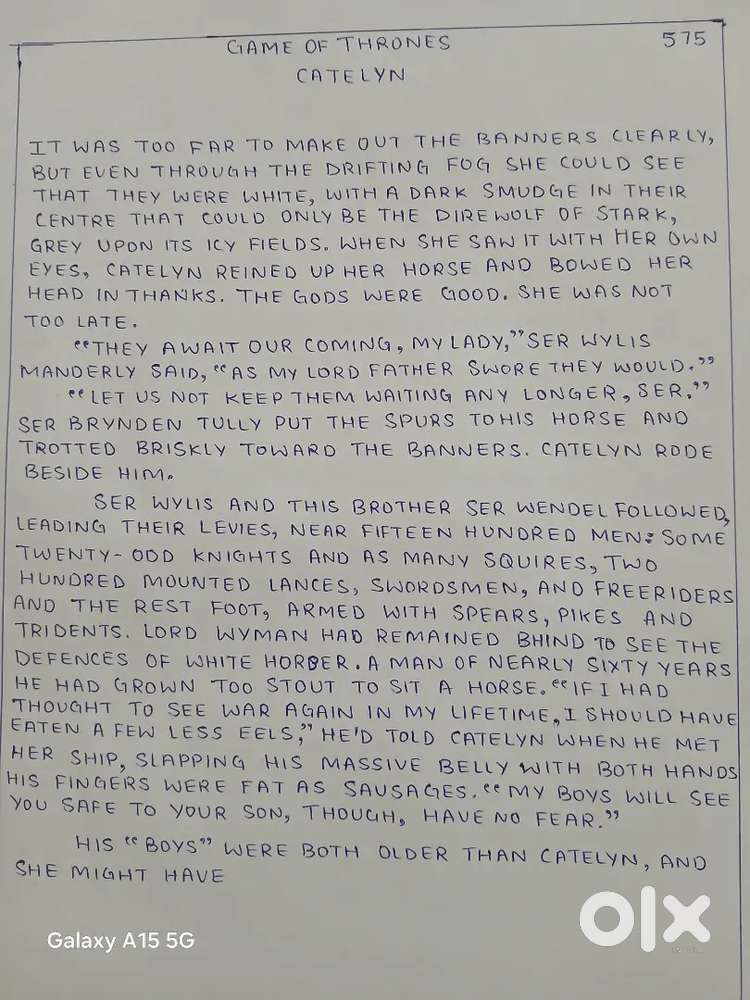 GAME OF THRONES 575
CATELYN
IT WAS TOO FAR TO MAKE OUT THE BANNERS CLEARLY,
BUT EVEN THROUGH THE DRIFTING FOG SHE COULD SEE
THAT THEY WERE WHITE, WITH A DARK SMUDGE IN THEIR
CENTRE THAT COULD ONLY BE THE DIREWOLF OF STARK,
GREY UPON ITS ICY FIELDS. WHEN SHE SAW IT WITH HER OWN
EYES, CATELYN REINED UP HER HORSE AND BOWED HER
HEAD IN THANKS. THE GODS WERE GOOD. SHE WAS NOT
TOO LATE.
"THEY AWAIT OUR COMING, MY LADY," SER WYLIS
MANDERLY SAID, "AS MY LORD FATHER SWORE THEY WOULD."
"LET US NOT KEEP THEM WAITING ANY LONGER, SER."
SER BRYNDEN TULLY PUT THE SPURS TO HIS HORSE AND
TROTTED BRISKLY TOWARD THE BANNERS. CATELYN RODE
BESIDE HIM.
SER WYLIS AND THIS BROTHER SER WENDEL FOLLOWED,
LEADING THEIR LEVIES, NEAR FIFTEEN HUNDRED MEN: SOME
TWENTY-ODD KNIGHTS AND AS MANY SQUIRES, TWO
HUNDRED MOUNTED LANCES, SWORDSMEN, AND FREERIDERS
AND THE REST FOOT, ARMED WITH SPEARS, PIKES AND
TRIDENTS. LORD WYMAN HAD REMAINED BHIND TO SEE THE
DEFENCES OF WHITE HORBER. A MAN OF NEARLY SIXTY YEARS
HE HAD GROWN TOO STOUT TO SIT A HORSE. "IF I HAD
THOUGHT TO SEE WAR AGAIN IN MY LIFETIME, I SHOULD HAVE
EATEN A FEW LESS EELS," HE'D TOLD CATELYN WHEN HE MET
HER SHIP, SLAPPING HIS MASSIVE BELLY WITH BOTH HANDS
HIS FINGERS WERE FAT AS SAUSAGES. "MY BOYS WILL SEE
YOU SAFE TO YOUR SON, THOUGH, HAVE NO FEAR."
HIS "BOYS" WERE BOTH OLDER THAN CATELYN, AND
SHE MIGHT HAVE
olx
Galaxy A15 5G